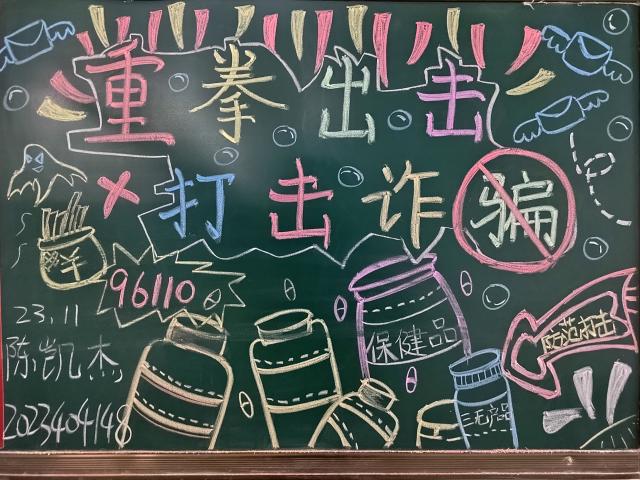 重拳出击
打击诈骗
96110
保健品
防范打击
三无产品
23.11
陈凯杰
2023404148